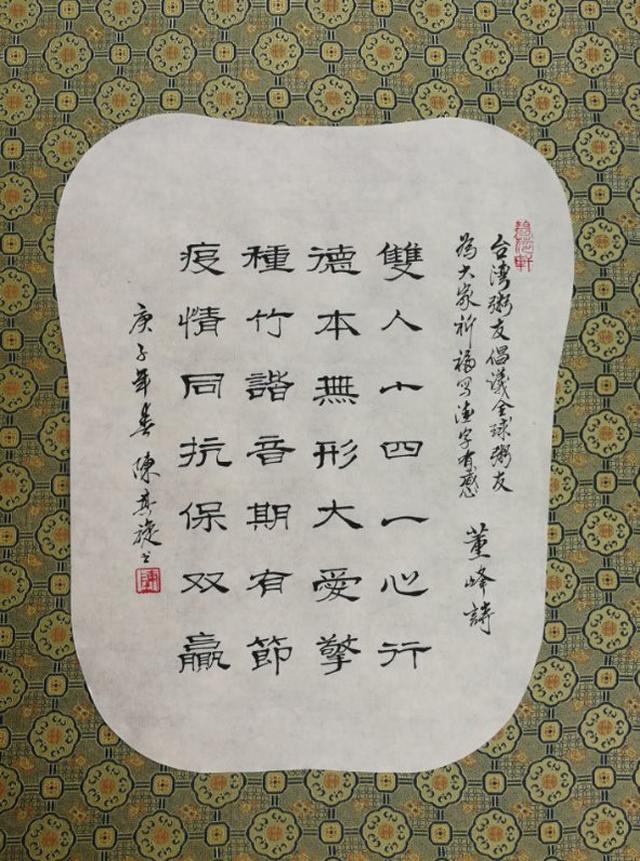 台湾粥友倡議全球粥友
為大家祈福写德字有感 董峰詩
雙人十四一心行
德本無形大愛擎
種竹諧音期有節
疫情同抗保双贏
庚子年春 陳其旋书
陳